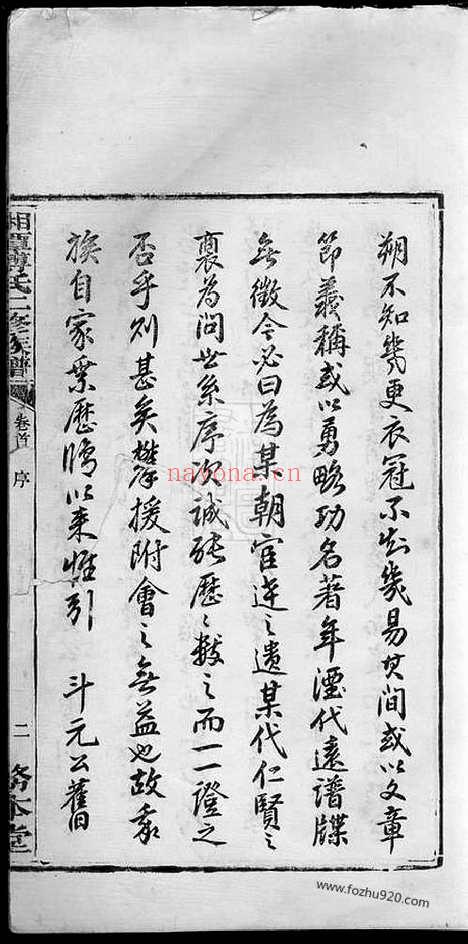 朔不知幾更衣冠不知幾易其間或以文章
節義稱或以勇略功名著年湮代遠譜牒
無徵今必曰為某朝宦迹之遺某代仁賢之
裔為問世系序次誠能歷歷數之而一一證之
否乎則甚矣攀援附會之無益也故我
族自家業歷譜以來惟引 斗元公舊
湘潭 氏二修族譜
卷首 序
二
務本堂
nayona.cn
www.fozhu920.com